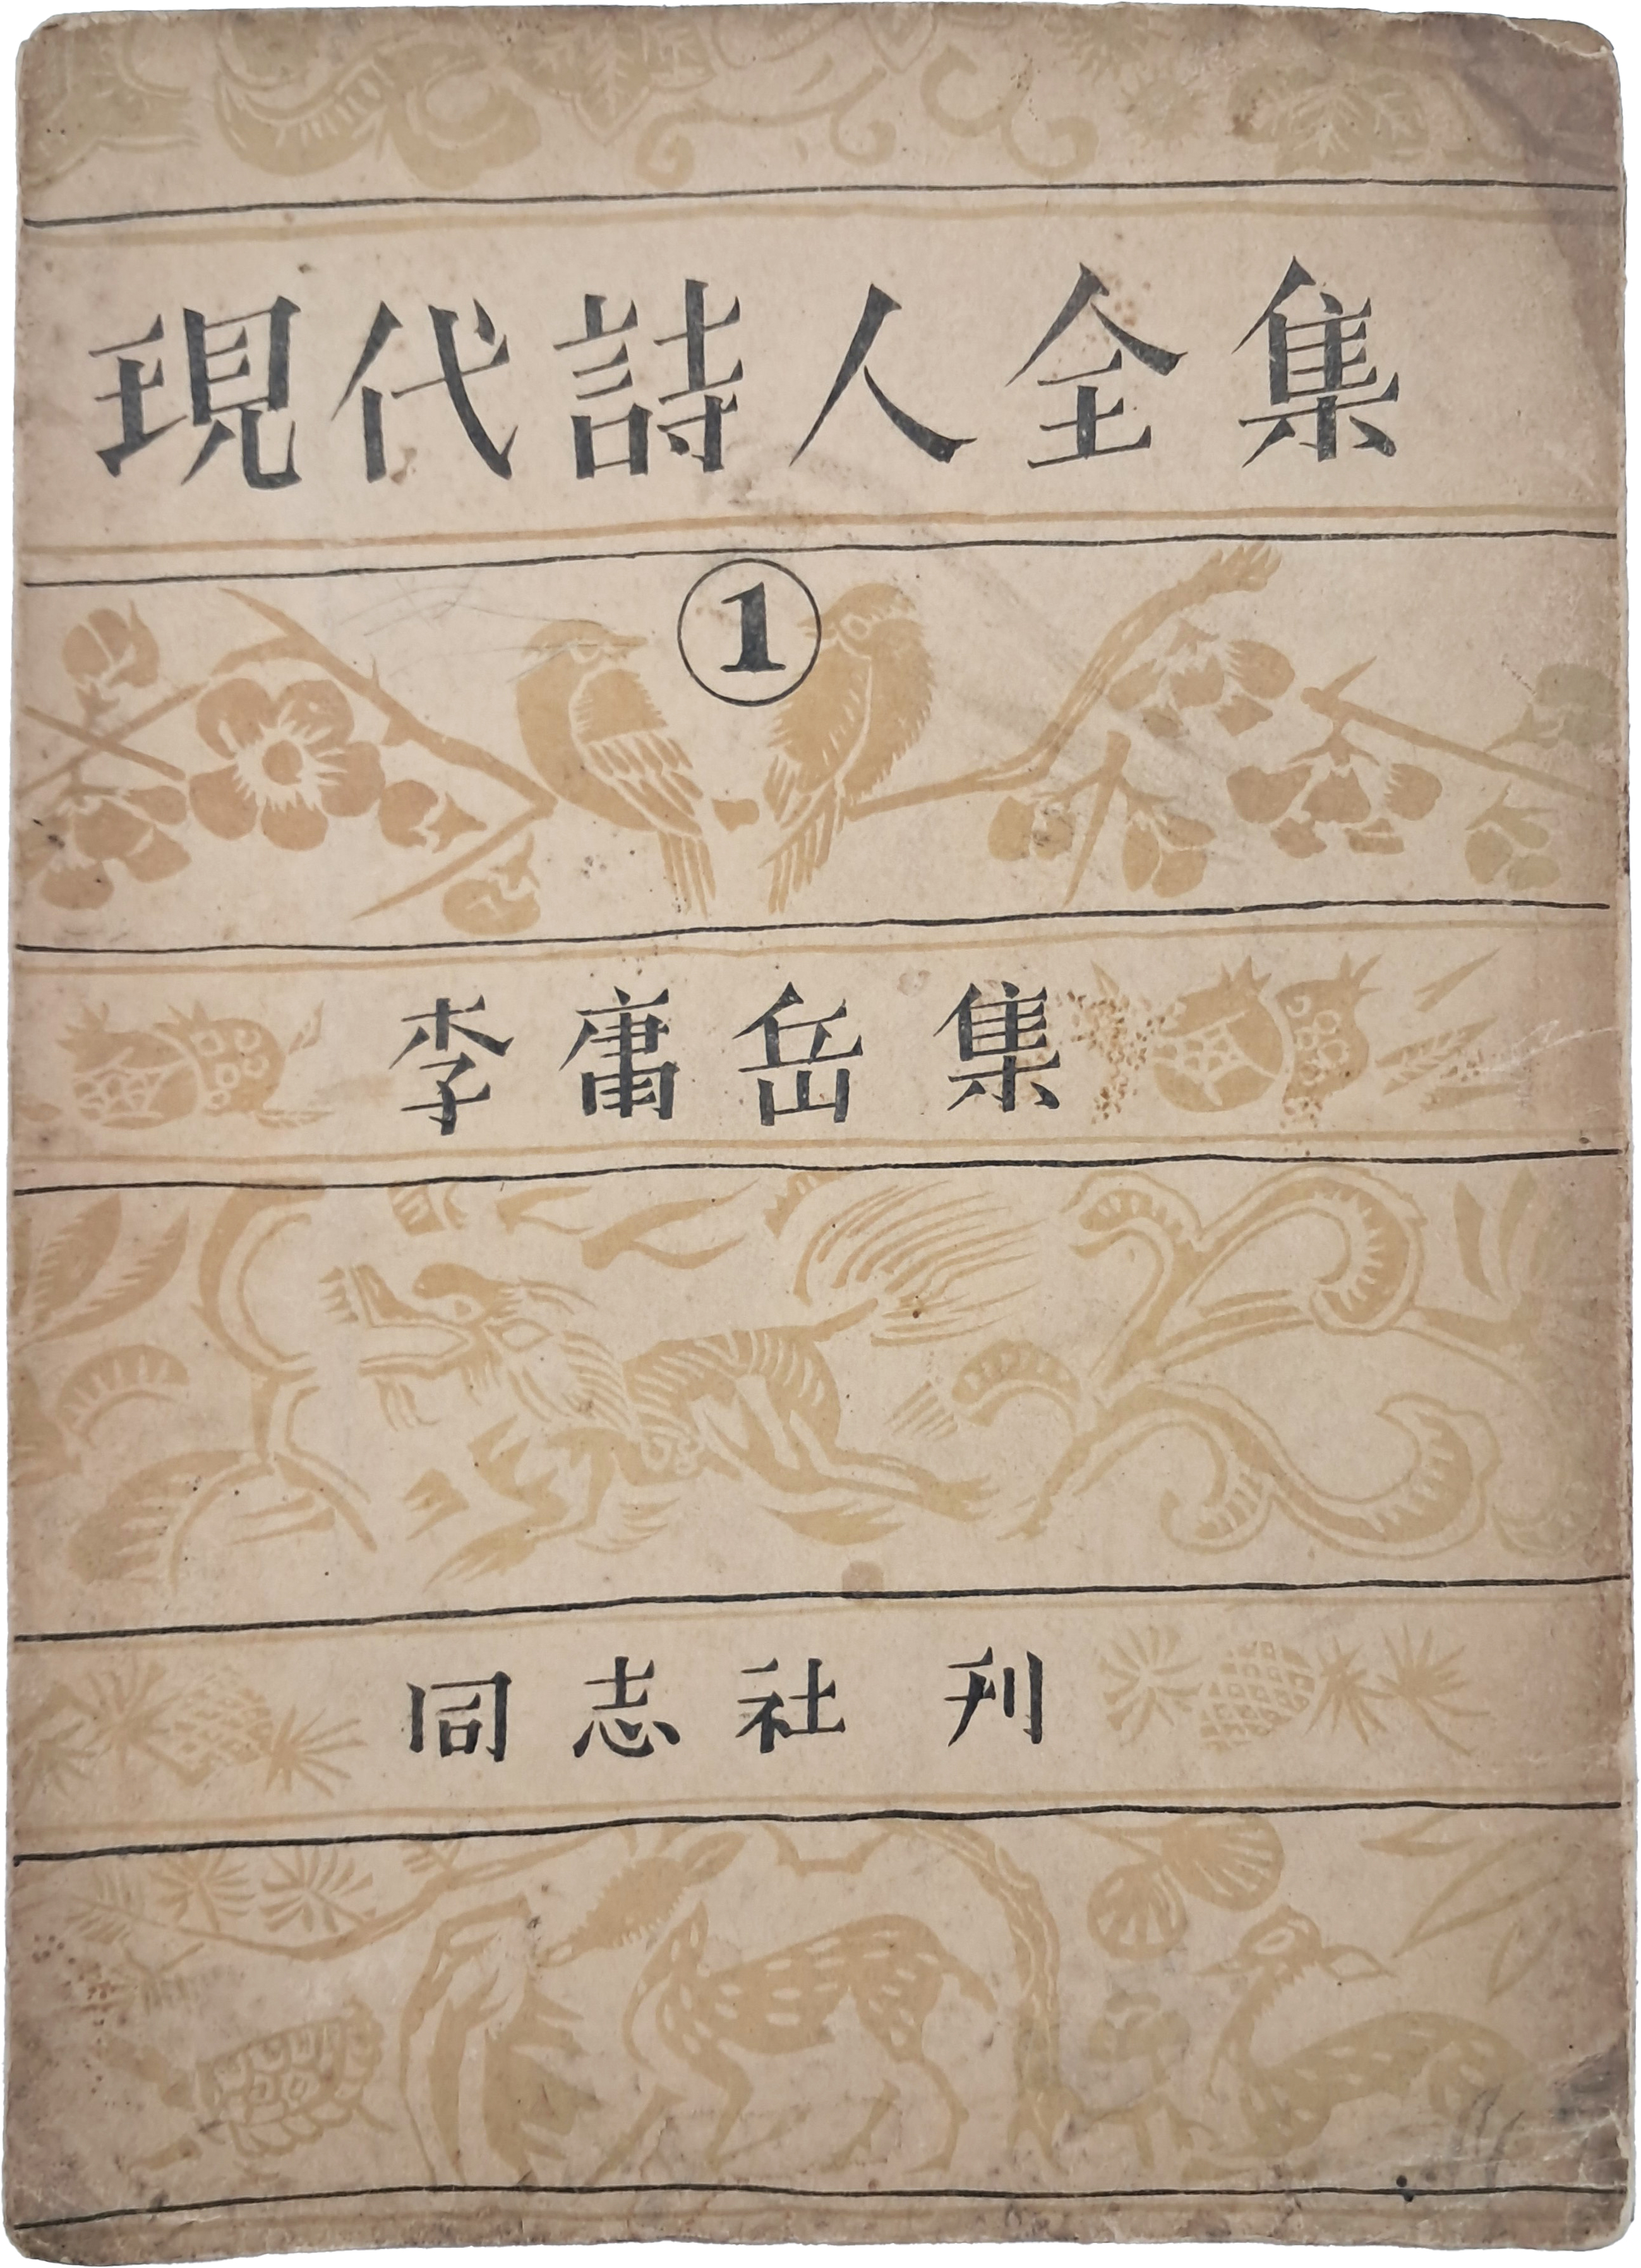 現代詩人全集
1
李庸岳集
同志社刊